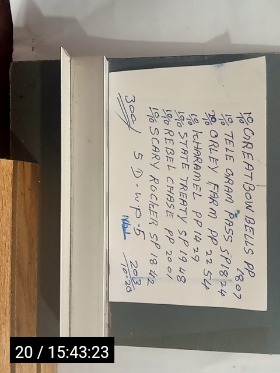 10/10 GREAT BOW BELLS PP 1807
10/10 TELE GRAM PASS SP 1824
20/10 ORLEY FARM PP 2254
10/10 KHARAMEL PP 1429
10/10 STATE TREATY SP 1948
10/10 REBEL CHASE PP 2001
10/10 SCARY ROCKER SP 1842
300/ 5 D-WP-5 203
20 / 15:43:23